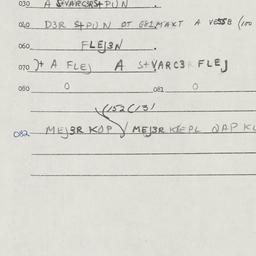 030 A S+VARC3RS+PUN .
040 D3R S+PUN OT GE1MAXT A VESSB (150
060 FLEJ3N .
070 )+ A FLEJ A S+VARC3R FLEJ
080 0 081 0
(152(131
082 MEJ3R KOP / MEJ3R KEPL NAP KL